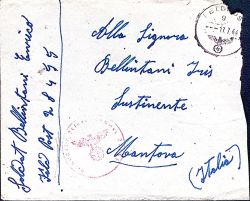 Soldat Bellintani Enrico
Feld Post 28495
Alla Signora
Bellintani Iris
Sustinente
Mantova
(Italia)